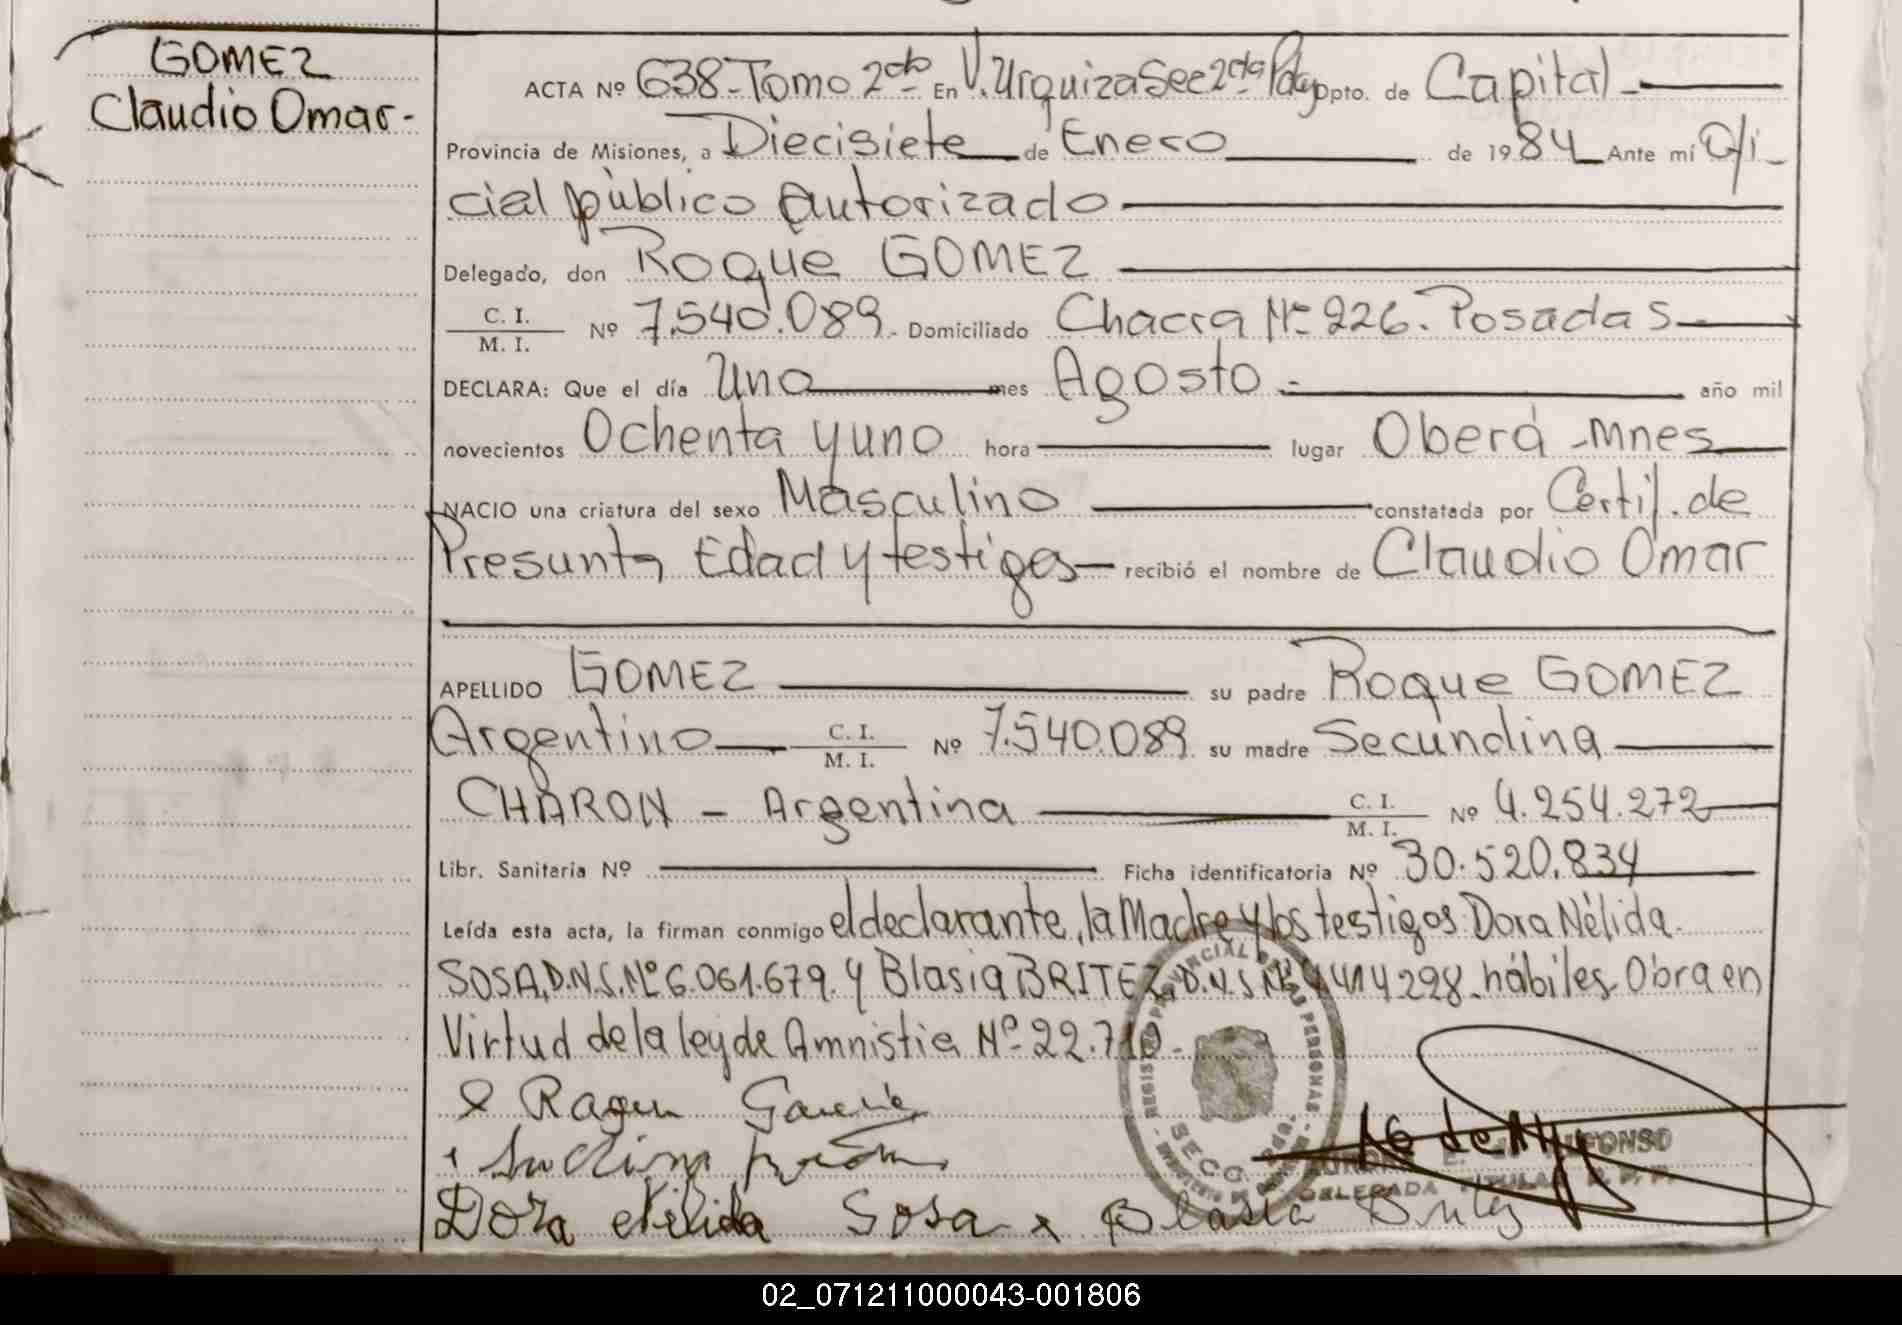 GOMEZ
Claudio Omar-
ACTA Nº 638-Tomo 2do- En V. Urquiza Sec 2da Pdas Dpto. de Capital-
Provincia de Misiones, a Diecisiete de Enero de 1984 Ante mí Ofi-
cial público autorizado
Delegado, don Roque GOMEZ
C. I. / M. I. Nº 7.540.089. Domiciliado Chacra Nº 226. Posadas
DECLARA: Que el día Uno mes Agosto.- año mil
novecientos Ochenta y uno hora lugar Oberá -Mnes
NACIO una criatura del sexo Masculino constatada por Certif. de
Presunta Edad y testigos recibió el nombre de Claudio Omar
APELLIDO GOMEZ su padre Roque GOMEZ
Argentino C. I. / M. I. Nº 7.540.089 su madre Secundina
CHARON - Argentina C. I. / M. I. Nº 4.254.272
Libr. Sanitaria Nº Ficha identificatoria Nº 30.520.834
Leída esta acta, la firman conmigo el declarante, la Madre y los testigos Dora Nélida
SOSA, D.N.S. Nº 6.061.679. y Blasia BRITEZ, D.N.S Nº 4414298. hábiles. Obra en
Virtud de la ley de Amnistia Nº 22.710.-
Dora Nélida Sosa x Blasia Britez
DELEGADA TITULAR R. P. P.
SECC.
02_071211000043-001806